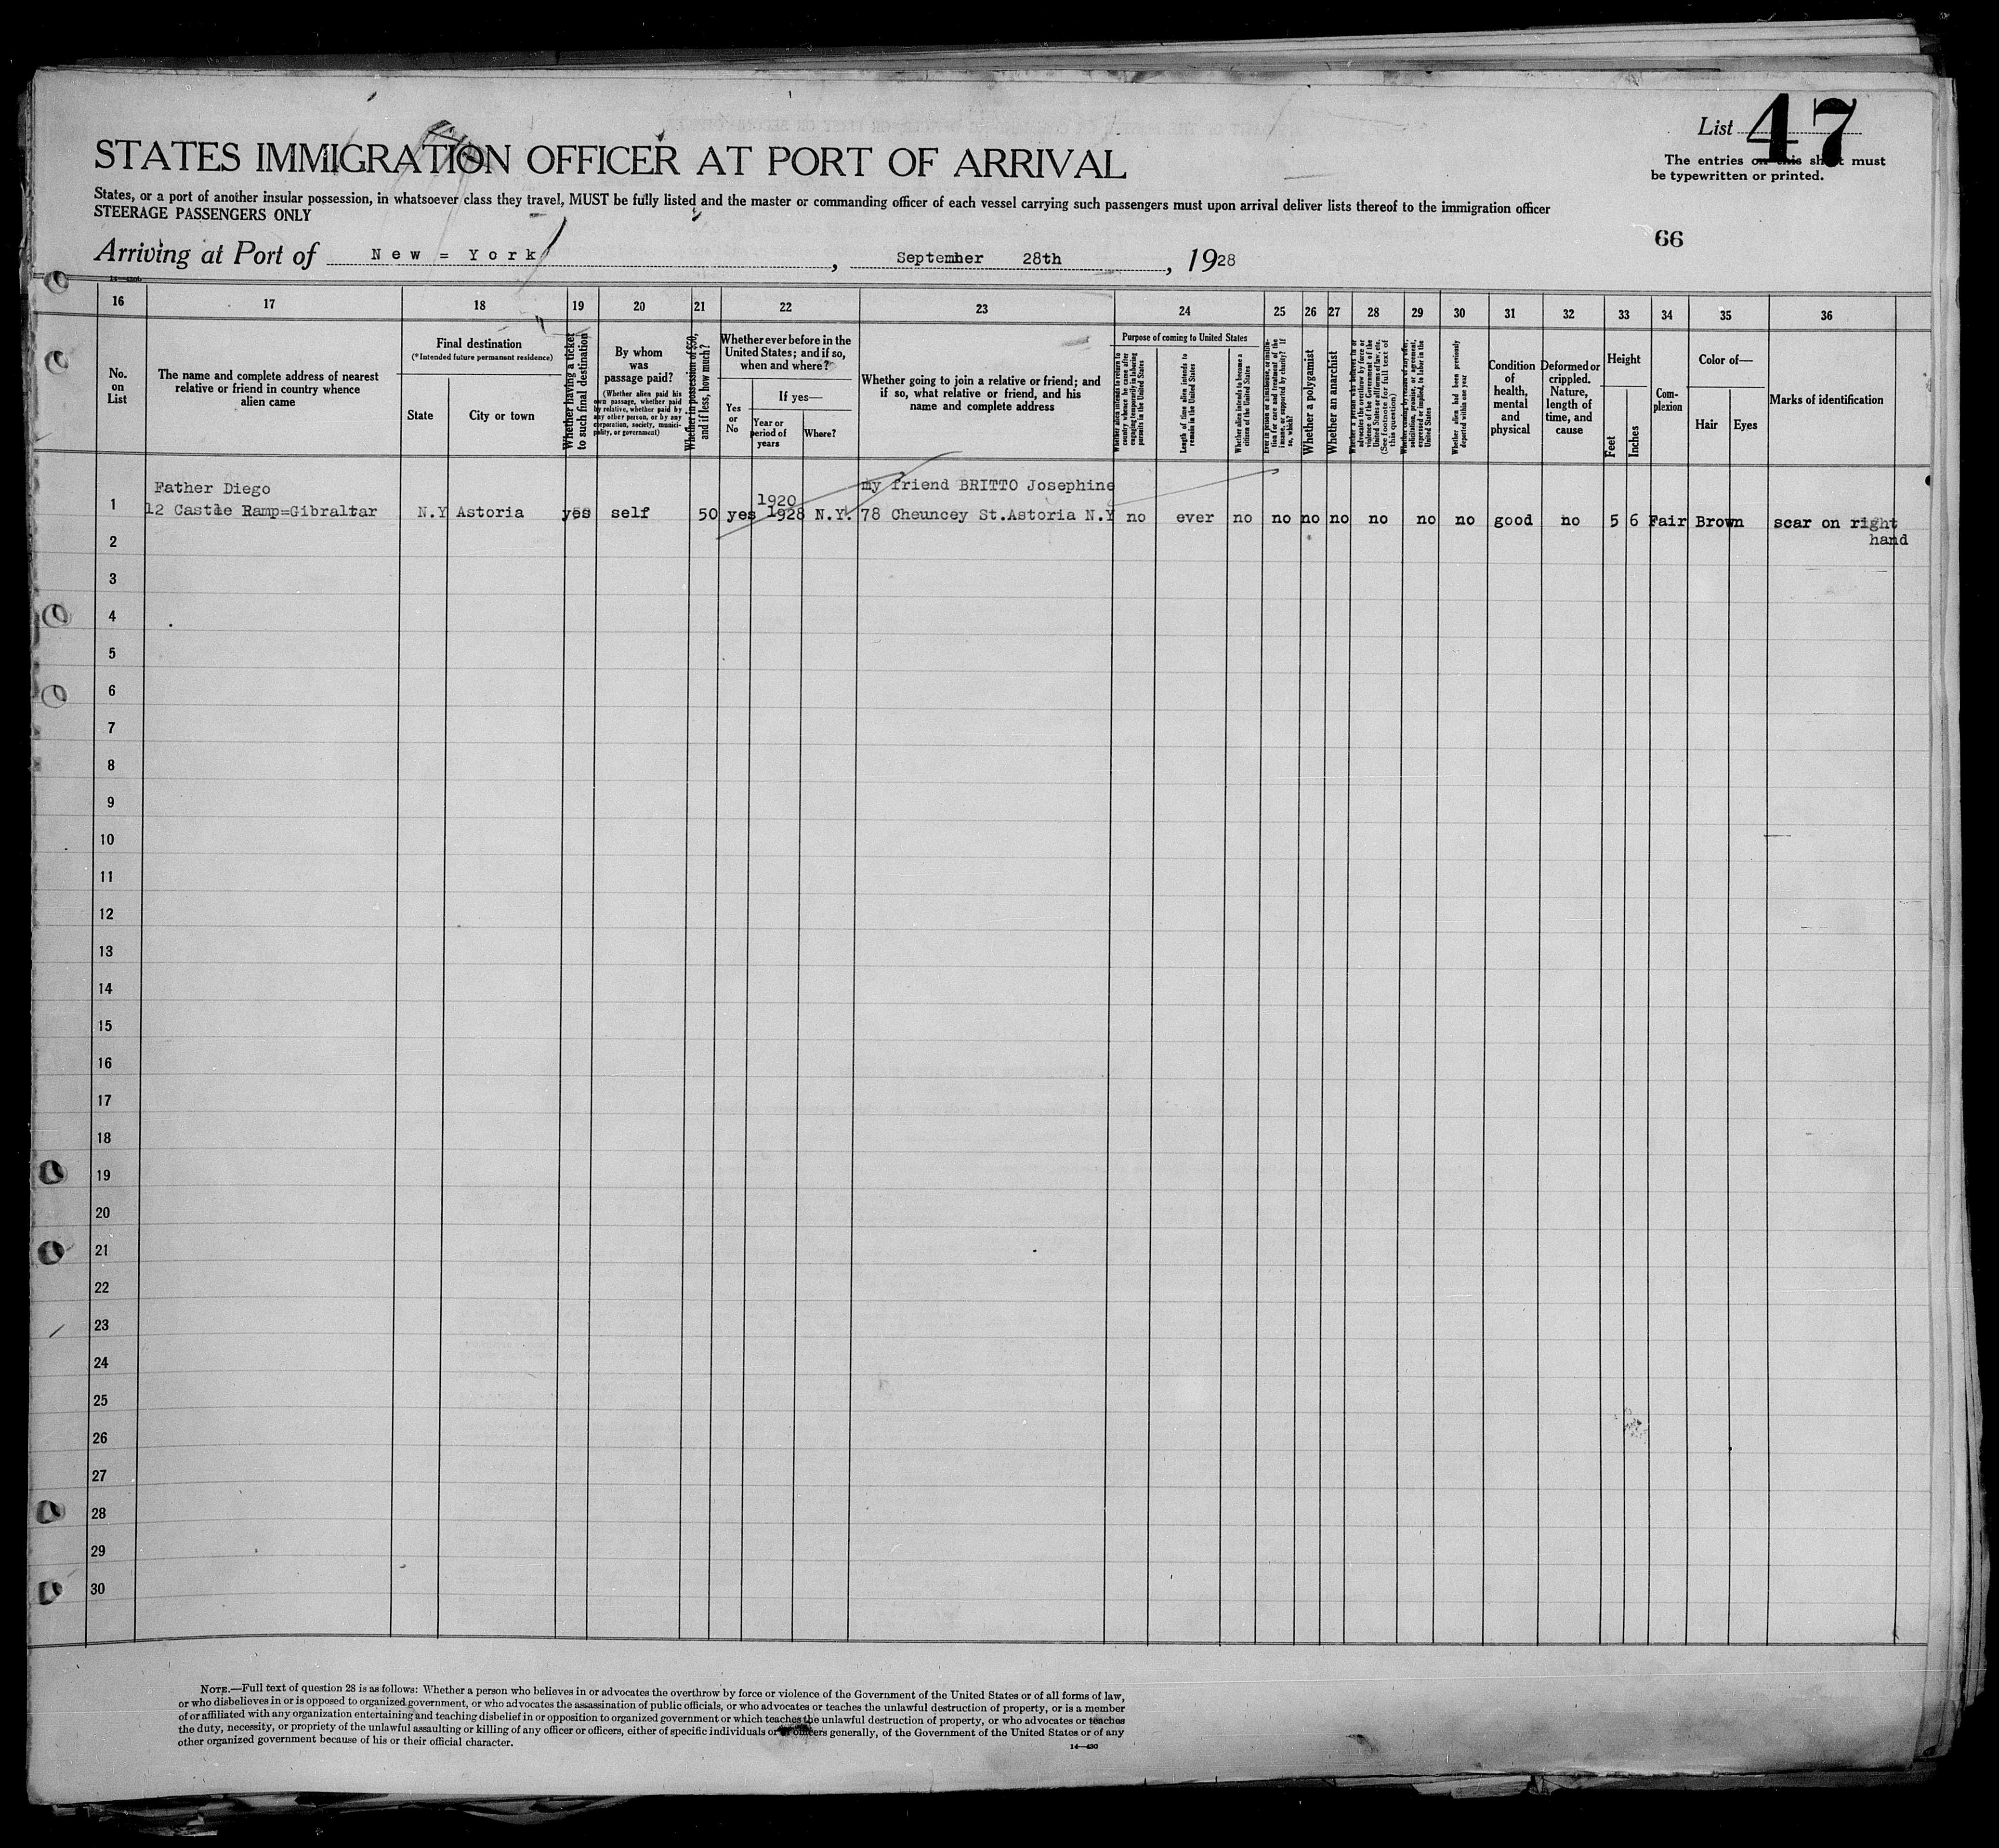 List 47
The entries on this sheet must
be typewritten or printed.
STATES IMMIGRATION OFFICER AT PORT OF ARRIVAL
States, or a port of another insular possession, in whatsoever class they travel, MUST be fully listed and the master or commanding officer of each vessel carrying such passengers must upon arrival deliver lists thereof to the immigration officer
STEERAGE PASSENGERS ONLY
66
Arriving at Port of New = York, September 28th, 1928
16 17 18 19 20 21 22 23 24 25 26 27 28 29 30 31 32 33 34 35 36
No.
on
List
The name and complete address of nearest
relative or friend in country whence
alien came
Final destination
(*Intended future permanent residence)
State
City or town
Whether having a ticket
to such final destination
By whom
was
passage paid?
(Whether alien paid his
own passage, whether paid
by relative, whether paid by
any other person, or by any
corporation, society, munici-
pality, or government)
Whether in possession of $50,
and if less, how much?
Whether ever before in the
United States; and if so,
when and where?
Yes
or
No
If yes—
Year or
period of
years
Where?
Whether going to join a relative or friend; and
if so, what relative or friend, and his
name and complete address
Purpose of coming to United States
Whether alien intends to return to
country whence he came after
engaging temporarily in laboring
pursuits in the United States
Length of time alien intends to
remain in the United States
Whether alien intends to become a
citizen of the United States
Ever in prison or almshouse, or institu-
tion for care and treatment of the
insane, or supported by charity? If
so, which?
Whether a polygamist
Whether an anarchist
Whether a person who believes in or
advocates the overthrow by force or
violence of the Government of the
United States or all forms of law, etc.
(See footnote for full text of
this question)
Whether coming by reason of any offer,
solicitation, promise, or agreement,
expressed or implied, to labor in the
United States
Whether alien had been previously
deported within one year
Condition
of
health,
mental
and
physical
Deformed or
crippled.
Nature,
length of
time, and
cause
Height
Feet
Inches
Com-
plexion
Color of—
Hair
Eyes
Marks of identification
Father Diego 1920 my friend BRITTO Josephine
1 12 Castle Ramp=Gibraltar N.Y Astoria yes self 50 yes 1928 N.Y. 78 Cheuncey St.Astoria N.Y no ever no no no no no no no good no 5 6 Fair Brown scar on right
hand
2
3
4
5
6
7
8
9
10
11
12
13
14
15
16
17
18
19
20
21
22
23
24
25
26
27
28
29
30
NOTE.—Full text of question 28 is as follows: Whether a person who believes in or advocates the overthrow by force or violence of the Government of the United States or of all forms of law,
or who disbelieves in or is opposed to organized government, or who advocates the assassination of public officials, or who advocates or teaches the unlawful destruction of property, or is a member
of or affiliated with any organization entertaining and teaching disbelief in or opposition to organized government or which teaches the unlawful destruction of property, or who advocates or teaches
the duty, necessity, or propriety of the unlawful assaulting or killing of any officer or officers, either of specific individuals or of officers generally, of the Government of the United States or of any
other organized government because of his or their official character.
14—430